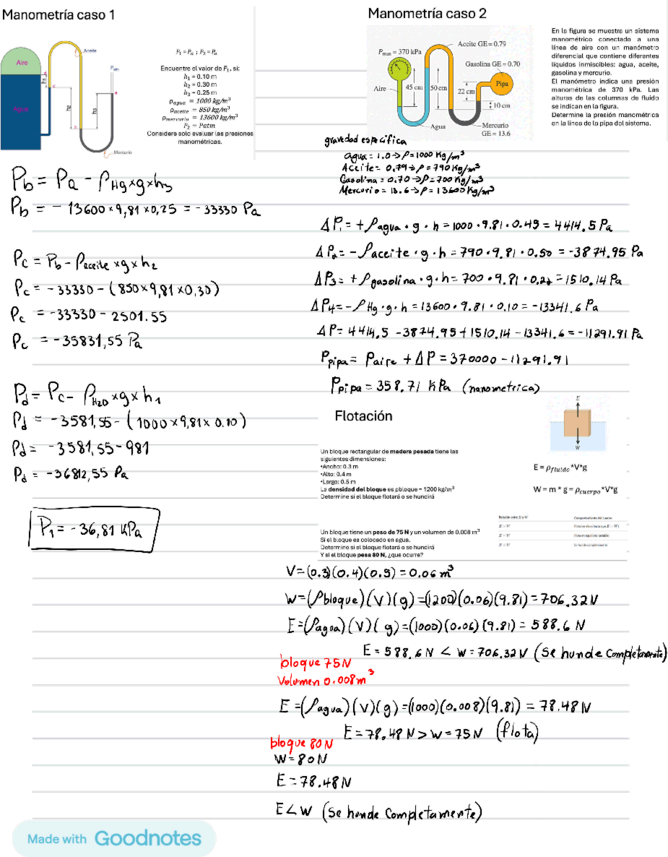 Manometría caso 1
Aire
Aceite
Mercurio
P₁ = Pₐ ; P₂ = Pₐ
Encuentre el valor de P₁, si:
h₁ = 0.10 m
h₂ = 0.30 m
h₃ = 0.25 m
ρagua = 1000 kg/m³
ρaceite = 850 kg/m³
ρmercurio = 13600 kg/m³
P₂ = Patm
Considere solo evaluar las presiones manométricas.
Pb = Pa - ρHg×g×h₃
Pb = - 13600×9,81×0,25 = -33330 Pa
Pc = Pb - ρaceite×g×h₂
Pc = -33330 - (850×9,81×0,30)
Pc = -33330 - 2501.55
Pc = -35831,55 Pa
Pd = Pc - ρH₂O×g×h₁
Pd = -3581,55 - (1000×9,81×0.10)
Pd = -3581,55-981
Pd = -36812,55 Pa
P₁ = -36,81 KPa
Manometría caso 2
Pman = 370 kPa
Aceite GE = 0.79
Gasolina GE = 0.70
Aire
45 cm
50 cm
22 cm
Pipa
10 cm
Agua
Mercurio
GE = 13.6
En la figura se muestra un sistema
manométrico conectado a una
línea de aire con un manómetro
diferencial que contiene diferentes
líquidos inmiscibles: agua, aceite,
gasolina y mercurio.
El manómetro indica una presión
manométrica de 370 kPa. Las
alturas de las columnas de fluido
se indican en la figura.
Determine la presión manométrica
en la línea de la pipa del sistema.
gravedad específica
agua = 1.0 → ρ=1000 Kg/m³
Aceite = 0.79 → ρ= 790 Kg/m³
Gasolina = 0.70 → ρ= 700 Kg/m³
Mercurio = 13.6 → ρ= 13600 Kg/m³
ΔP₁ = + ρagua · g · h = 1000 · 9.81 · 0.45 = 4414.5 Pa
ΔP₂ = - ρaceite · g · h = 790 · 9.81 · 0.50 = -3874.95 Pa
ΔP3 = + ρgasolina · g · h = 700 · 9.81 · 0.22 = 1510.14 Pa
ΔP4 = - ρHg · g · h = 13600 · 9.81 · 0.10 = -13341.6 Pa
ΔP = 4414.5 - 3874.95 + 1510.14 - 13341.6 = -11291.91 Pa
Ppipa = Paire + ΔP = 370000 - 11291.91
Ppipa = 358.71 KPa (manometrica)
Flotación
E
W
Un bloque rectangular de madera pesada tiene las
siguientes dimensiones:
•Ancho: 0.3 m
•Alto: 0.4 m
•Largo: 0.5 m
La densidad del bloque es ρbloque = 1200 kg/m³
Determine si el bloque flotará o se hundirá
E = ρfluido*V*g
W = m * g = ρcuerpo*V*g
Un bloque tiene un peso de 75 N y un volumen de 0.008 m³
Si el bloque es colocado en agua.
Determine si el bloque flotará o se hundirá
Y si el bloque pesa 80 N, ¿qué ocurre?
V=(0.3)(0.4)(0.5) = 0.06 m³
W = (ρbloque)(V)(g) = (1200)(0.06)(9.81) = 706.32 N
E = (ρagua)(V)(g) = (1000)(0.06)(9.81) = 588.6 N
E = 588.6N < W = 706.32N (Se hunde completamente)
bloque 75N
Volumen 0.008m³
E = (ρagua)(V)(g) = (1000)(0.008)(9.81) = 78.48 N
E = 78.48 N > W = 75N (flota)
bloque 80N
W = 80N
E = 78.48N
E<W (Se hunde Completamente)
Made with Goodnotes